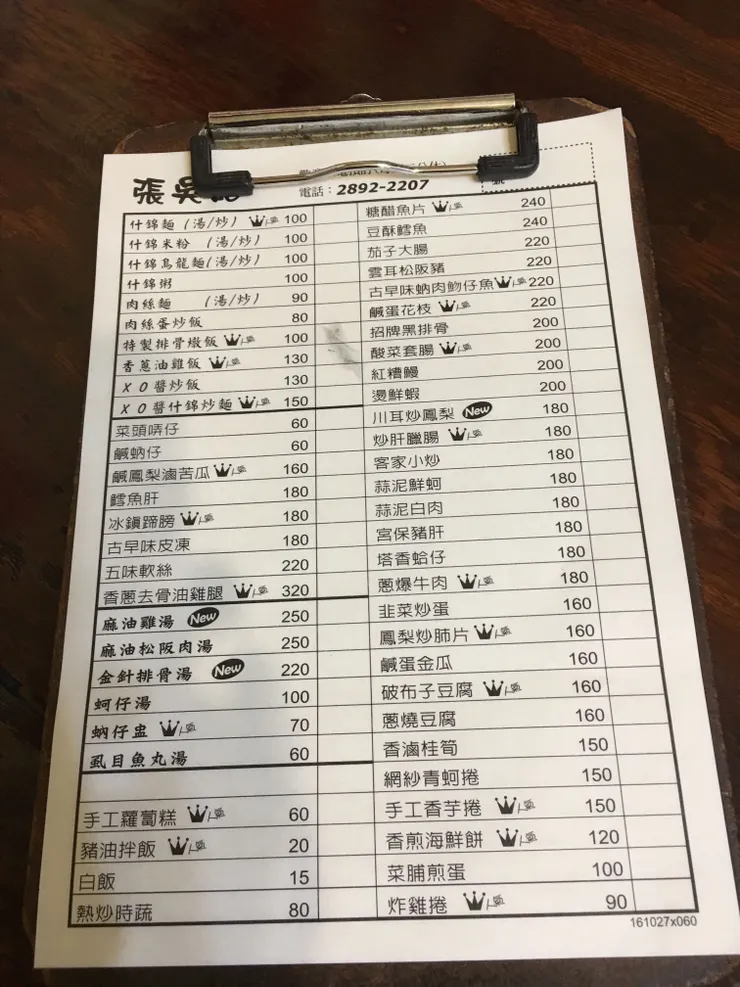 張吳
電話：2892-2207
什錦麵（湯/炒） 人氣 100
什錦米粉 （湯/炒） 100
什錦烏龍麵（湯/炒） 100
什錦粥 100
肉絲麵 （湯/炒） 90
肉絲蛋炒飯 80
特製排骨燉飯 人氣 100
香蔥油雞飯 人氣 130
ＸＯ醬炒飯 130
ＸＯ醬什錦炒麵 人氣 150
菜頭哖仔 60
鹹蚋仔 60
鹹鳳梨滷苦瓜 人氣 160
鱈魚肝 180
冰鎮蹄膀 人氣 180
古早味皮凍 180
五味軟絲 220
香蔥去骨油雞腿 人氣 320
麻油雞湯 New 250
麻油松阪肉湯 250
金針排骨湯 New 220
蚵仔湯 100
蚋仔盅 人氣 70
虱目魚丸湯 60
手工蘿蔔糕 人氣 60
豬油拌飯 人氣 20
白飯 15
熱炒時蔬 80
糖醋魚片 人氣 240
豆酥鱈魚 240
茄子大腸 220
雲耳松阪豬 220
古早味蚋肉魩仔魚 人氣 220
鹹蛋花枝 人氣 220
招牌黑排骨 200
酸菜套腸 人氣 200
紅糟鰻 200
燙鮮蝦 200
川耳炒鳳梨 New 180
炒肝臘腸 人氣 180
客家小炒 180
蒜泥鮮蚵 180
蒜泥白肉 180
宮保豬肝 180
塔香蛤仔 180
蔥爆牛肉 人氣 180
韭菜炒蛋 160
鳳梨炒肺片 人氣 160
鹹蛋金瓜 160
破布子豆腐 人氣 160
蔥燒豆腐 160
香滷桂筍 150
網紗青蚵捲 150
手工香芋捲 人氣 150
香煎海鮮餅 人氣 120
菜脯煎蛋 100
炸雞捲 人氣 90
161027x060